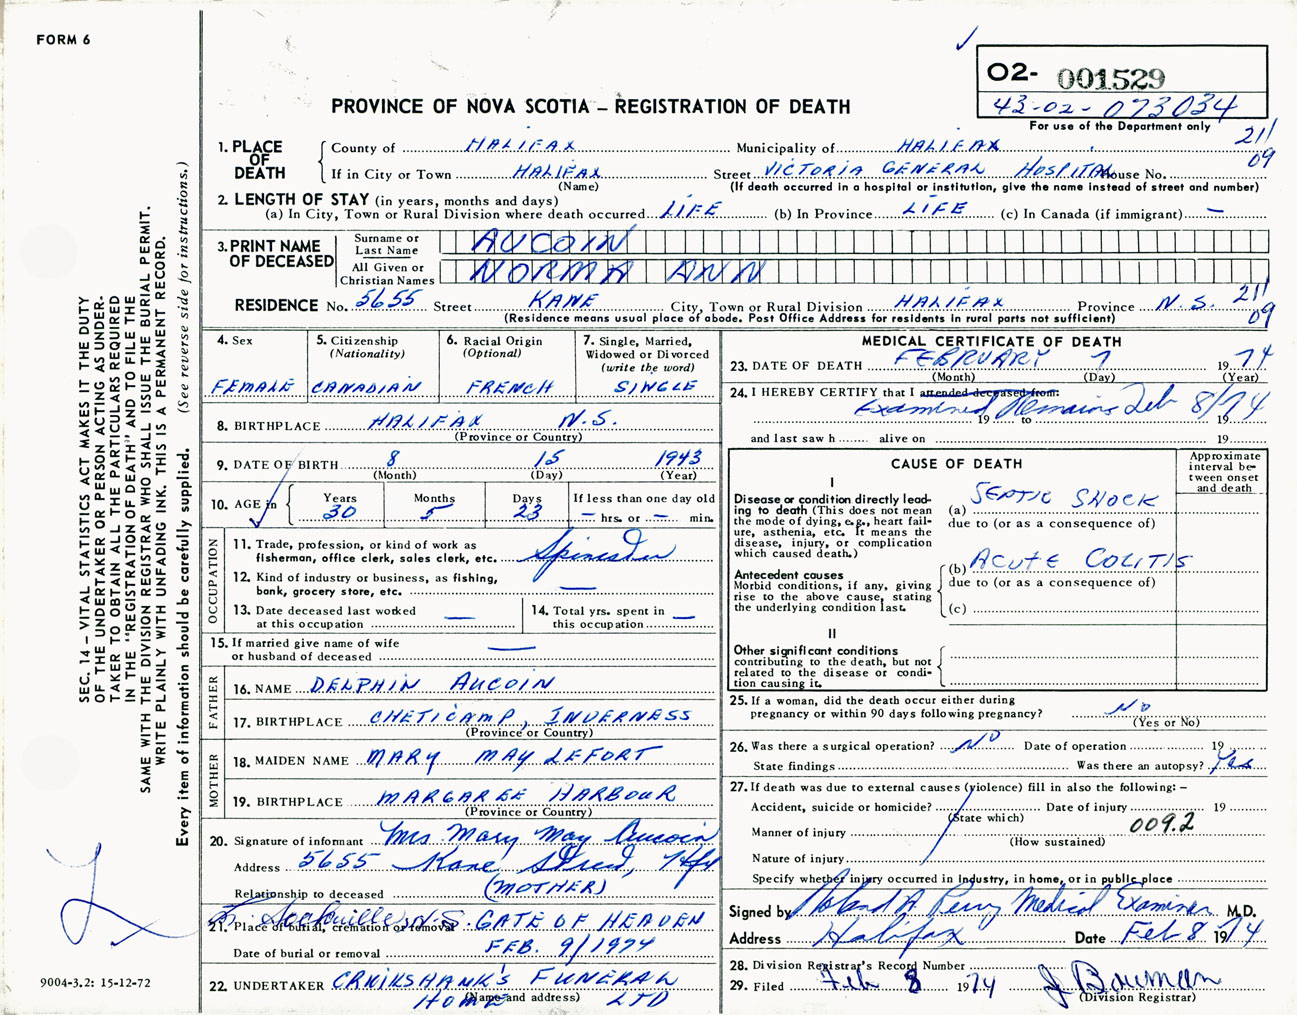 FORM 6
O2- 001529
43-02-073034
For use of the Department only
PROVINCE OF NOVA SCOTIA – REGISTRATION OF DEATH
211
09
1. PLACE OF DEATH
County of HALIFAX Municipality of HALIFAX
If in City or Town HALIFAX Street VICTORIA GENERAL HOSPITAL House No.
(Name) (If death occurred in a hospital or institution, give the name instead of street and number)
2. LENGTH OF STAY (in years, months and days)
(a) In City, Town or Rural Division where death occurred LIFE (b) In Province LIFE (c) In Canada (if immigrant) —
3. PRINT NAME OF DECEASED
Surname or Last Name AUCOIN
All Given or Christian Names NORMA ANN
RESIDENCE No. 5655 Street KANE City, Town or Rural Division HALIFAX Province N.S. 211
09
(Residence means usual place of abode. Post Office Address for residents in rural parts not sufficient)
4. Sex FEMALE
5. Citizenship (Nationality) CANADIAN
6. Racial Origin (Optional) FRENCH
7. Single, Married, Widowed or Divorced (write the word) SINGLE
8. BIRTHPLACE HALIFAX N.S.
(Province or Country)
9. DATE OF BIRTH 8 15 1943
(Month) (Day) (Year)
10. AGE in Years 30 Months 5 Days 23 If less than one day old — hrs. or — min.
OCCUPATION
11. Trade, profession, or kind of work as fisherman, office clerk, sales clerk, etc. Spinster
12. Kind of industry or business, as fishing, bank, grocery store, etc. —
13. Date deceased last worked at this occupation —
14. Total yrs. spent in this occupation —
15. If married give name of wife or husband of deceased —
FATHER
16. NAME DELPHIN AUCOIN
17. BIRTHPLACE CHETICAMP, INVERNESS
(Province or Country)
MOTHER
18. MAIDEN NAME MARY MAY LEFORT
19. BIRTHPLACE MARGAREE HARBOUR
(Province or Country)
20. Signature of informant Mrs Mary May Aucoin
Address 5655 Kane Street, Hfx
Relationship to deceased (MOTHER)
Sackville, N.S.
21. Place of burial, cremation or removal GATE OF HEAVEN
Date of burial or removal FEB. 9/1974
22. UNDERTAKER CRUIKSHANK'S FUNERAL
HOME LTD
(Name and address)
MEDICAL CERTIFICATE OF DEATH
23. DATE OF DEATH FEBRUARY 7 1974
(Month) (Day) (Year)
24. I HEREBY CERTIFY that I attended deceased from:
Examined Remains Feb 8/74
19 to 19
and last saw h alive on 19
CAUSE OF DEATH
Approximate interval between onset and death
I
Disease or condition directly leading to death (This does not mean the mode of dying, e.g., heart failure, asthenia, etc. It means the disease, injury, or complication which caused death.)
(a) SEPTIC SHOCK
due to (or as a consequence of)
Antecedent causes
Morbid conditions, if any, giving rise to the above cause, stating the underlying condition last.
(b) ACUTE COLITIS
due to (or as a consequence of)
(c)
II
Other significant conditions
contributing to the death, but not related to the disease or condition causing it.
25. If a woman, did the death occur either during pregnancy or within 90 days following pregnancy? NO
(Yes or No)
26. Was there a surgical operation? NO Date of operation 19
State findings Was there an autopsy? Yes
27. If death was due to external causes (violence) fill in also the following: –
Accident, suicide or homicide? Date of injury 19
(State which)
Manner of injury 009.2
(How sustained)
Nature of injury
Specify whether injury occurred in Industry, in home, or in public place
Signed by Roland A Perry Medical Examiner M.D.
Address Halifax Date Feb 8 1974
28. Division Registrar's Record Number
29. Filed Feb 8 1974 J. Bowman
(Division Registrar)
SEC. 14 – VITAL STATISTICS ACT MAKES IT THE DUTY
OF THE UNDERTAKER OR PERSON ACTING AS UNDER-
TAKER TO OBTAIN ALL THE PARTICULARS REQUIRED
IN THE "REGISTRATION OF DEATH" AND TO FILE THE
SAME WITH THE DIVISION REGISTRAR WHO SHALL ISSUE THE BURIAL PERMIT.
WRITE PLAINLY WITH UNFADING INK. THIS IS A PERMANENT RECORD.
Every item of information should be carefully supplied. (See reverse side for instructions.)
9004-3.2: 15-12-72